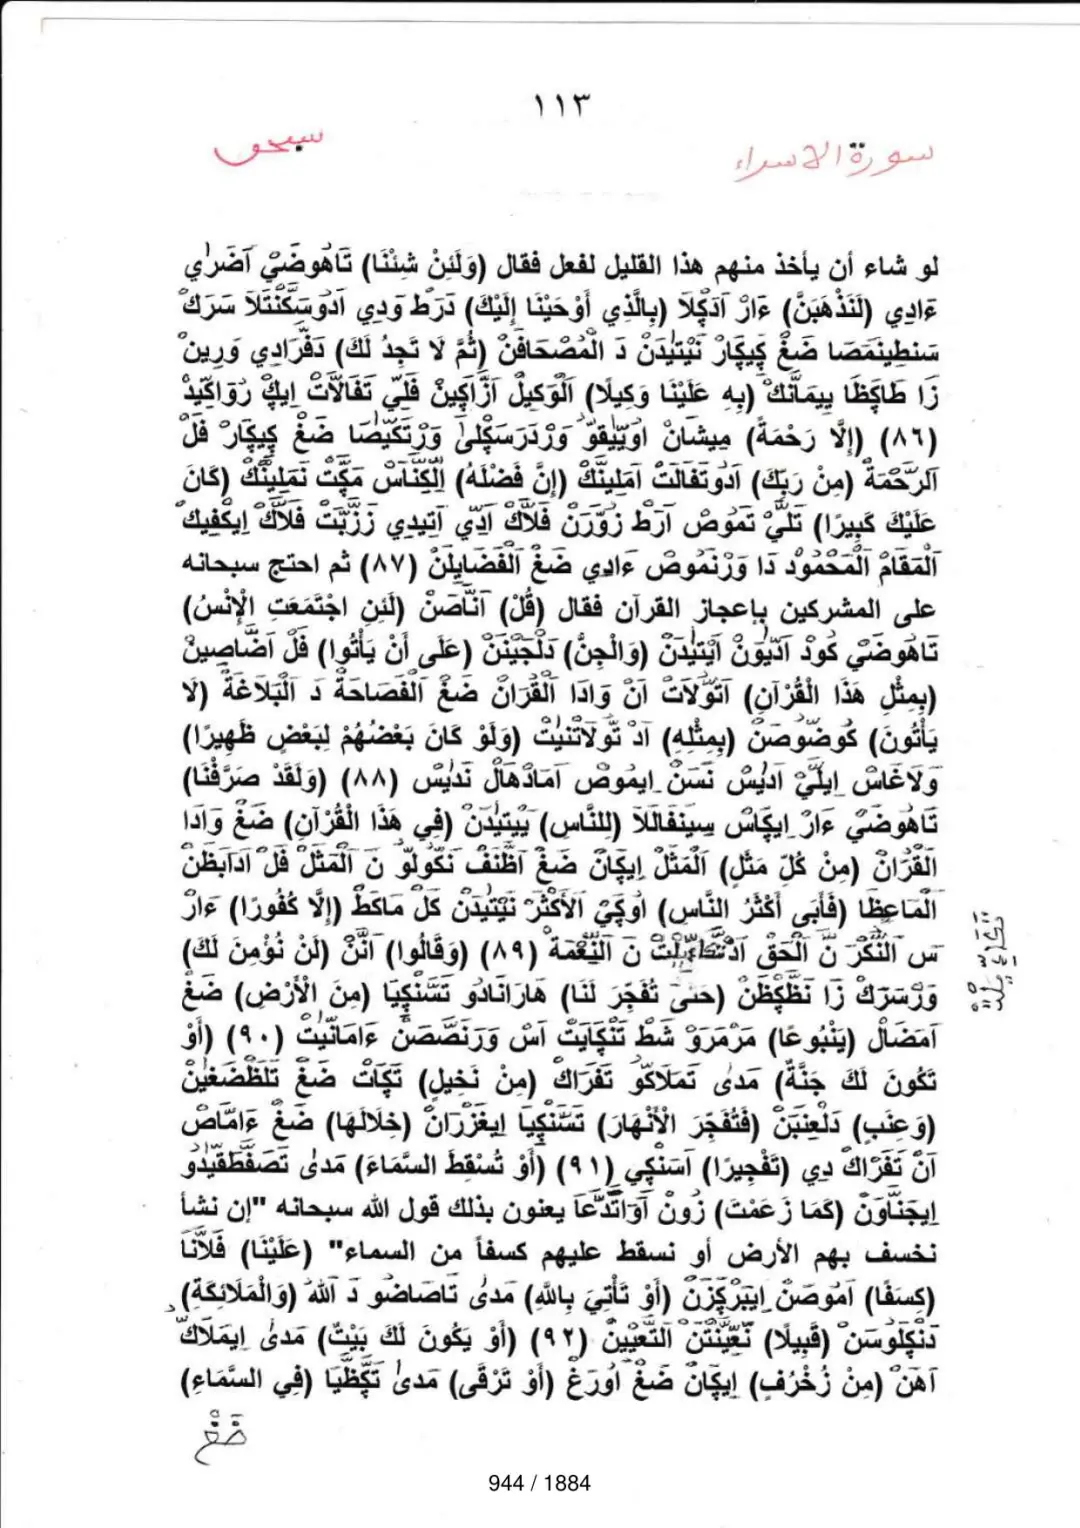 ١١٣
سورة الاسراء
سبحن
لو شاء أن يأخذ منهم هذا القليل لفعل فقال (وَلَئِنْ شِئْنَا) تَاهُوضَيْ آضَرٰي
ءَادِي (لَنَذْهَبَنَّ) ءَارْ آدَكْلَا (بِالَّذِي أَوْحَيْنَا إِلَيْكَ) دَرَطْ وَدِي آدَوسَكَّنْتَلَا سَرَكْ
سَنطِينمَصَا ضَغْ كِيكَارْ نَيْتِيدَنْ دَ الْمَصْحَافَنْ (ثُمَّ لَا تَجِدُ لَكَ) دَفَّرَادِي وَرِينْ
زَا طَاكَظَا بِيمَانَّكْ (بِهِ عَلَيْنَا وَكِيلًا) آلْوَكِيلْ آرَّاكِينْ فَلِّي تَفَالَاتْ إِيكْ رُوَاكِيدْ
(٨٦) (إِلَّا رَحْمَةً) مِيشَانْ
(مِنْ رَبِّكَ) آدُوتَفَالَتْ آمَلِينَّكْ (إِنَّ فَضْلَهُ) الْكِنَّاسْ مَكَّتْ نَمَلِينَّكْ (كَانَ
عَلَيْكَ كَبِيرًا) تَلَيْ تَمُوصْ آرَطْ زُوَّرَنْ فَلَّاكْ آدِّي آتِيدِي زَزُّبَتْ فَلَّاكْ إِيكْفِيكْ
آلْمَقَامْ آلْمَحْمُودْ دَا وَرْنَمُوصْ ءَادِي ضَغْ آلْفَضَايِلَنْ (٨٧) ثم احتج سبحانه
على المشركين بإعجاز القرآن فقال (قُلْ) آنَّاصَنْ (لَئِنِ اجْتَمَعَتِ الْإِنْسُ)
تَاهُوضَيْ كُودْ آدِّيوَنْ آيْتِيدَنْ (وَالْجِنُّ) دَلْجَيْنَنْ (عَلَى أَنْ يَأْتُوا) فَلْ آضَّاصِينْ
(بِمِثْلِ هَذَا الْقُرْآنِ) آتَوَّلَاتْ آنْ وَادَا آلْقُرَانْ ضَغْ آلْفَصَاحَةْ دَ آلْبَلَاغَةْ (لَا
يَأْتُونَ) كُوضُوصَنْ (بِمِثْلِهِ) آدْ تَوَّلَاتْنَيْتْ (وَلَوْ كَانَ بَعْضُهُمْ لِبَعْضٍ ظَهِيرًا)
وَلَاغَاسْ إِيلَيْ آدِيسْ نَسَنْ إِيمُوصْ آمَادْهَالْ نَدِيسْ (٨٨) (وَلَقَدْ صَرَّفْنَا)
تَاهُوضَيْ ءَارْ إِيكَاسْ سِينَفَالَلَا (لِلنَّاسِ) يَيْتِيدَنْ (فِي هَذَا الْقُرْآنِ) ضَغْ وَادَا
آلْقُرَانْ (مِنْ كُلِّ مَثَلٍ) آلْمَثَلْ إِيكَانْ ضَغْ آظَّنَفْ نَكُولُو نَ آلْمَثَلْ فَلْ آدَابَظَنْ
آلْمَاعِظَا (فَأَبَى أَكْثَرُ النَّاسِ) اوكَيْ آلْأَكْثَرْ نَيْتِيدَنْ كُلْ مَاكَطْ (إِلَّا كُفُورًا) ءَارْ
سَ آلنُّكْرْ نَّ آلْحَقْ نَ آلنِّعْمَةْ (٨٩) (وَقَالُوا) آنَّنْ (لَنْ نُؤْمِنَ لَكَ)
وَرْسَرَكْ زَا نَظَّكَظَنْ (حَتَّى تُفَجِّرَ لَنَا) هَارَانَادُو تَسَّنْكِيَا (مِنَ الْأَرْضِ) ضَغْ
آمَضَالْ (يَنْبُوعًا) مَرْمَرَوْ شَطْ تَنْكَايَتْ آسْ وَرَنَصَّصَنْ ءَامَانَيْتْ (٩٠) (أَوْ
تَكُونَ لَكَ جَنَّةٌ) مَدىٰ تَمَلَاكُو تَفَرَاكْ (مِنْ نَخِيلٍ) تَكَاتْ ضَغْ تَلَظْضَغِينْ
(وَعِنَبٍ) دَلْعِنَبَنْ (فَتُفَجِّرَ الْأَنْهَارَ) تَسَّنْكِيَا إِيغَزْرَانْ (خِلَالَهَا) ضَغْ ءَامَّاصْ
آنْ تَفَرَاكْ دِي (تَفْجِيرًا) آسَنْكِي (٩١) (أَوْ تُسْقِطَ السَّمَاءَ) مَدىٰ تَصَفَّطَقِيدُو
إِيجَنَّاوَنْ (كَمَا زَعَمْتَ) زُونْ آوَاتَدَّعَا يعنون بذلك قول الله سبحانه "إن نشأ
نخسف بهم الأرض أو نسقط عليهم كسفاً من السماء" (عَلَيْنَا) فَلَّانَا
(كِسَفًا) آمُوصَنْ إِيبَرْكَزَنْ (أَوْ تَأْتِيَ بِاللَّهِ) مَدىٰ تَاصَاضُو دَ آللهْ (وَالْمَلَائِكَةِ)
دَنْكَلُوسَنْ (قَبِيلًا) نَّعَيَّنَتَنْ آلتَّعْيِينْ (٩٢) (أَوْ يَكُونَ لَكَ بَيْتٌ) مَدىٰ إِيمَلَاكْ
آهَنْ (مِنْ زُخْرُفٍ) إِيكَانْ ضَغْ اُورَغْ (أَوْ تَرْقَى) مَدىٰ تَكَّظِيَا (فِي السَّمَاءِ)
ضَغْ
944 / 1884